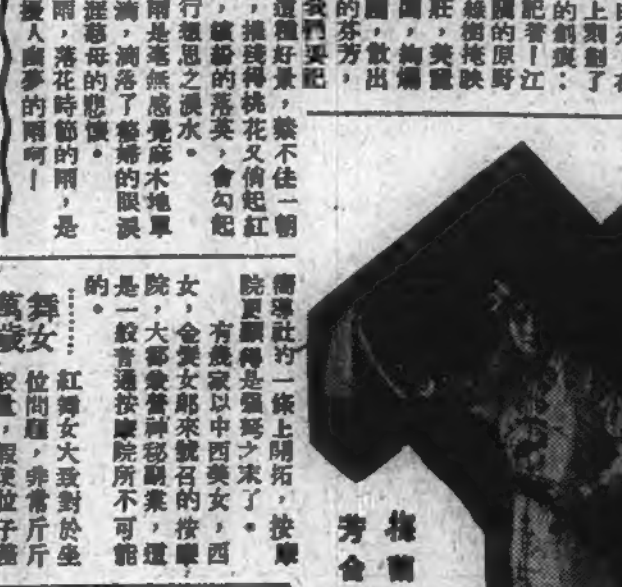 日來在
上刻劃了
的創痍：
記者－江
關的原野
綠樹掩映
莊，美麗
，絢爛
，散出
的芬芳，
我們要記
這種好景，禁不住一朝
，摧殘得桃花又俏起紅
，繽紛的落英，會勾起
行想思之淚水。
雨是毫無感覺麻木地單
滴，滴落了嫠婦的眼淚
涯慈母的悲懷。
雨，落花時節的雨，是
擾人幽夢的雨啊－
嚮導社的一條上開拓，按摩
院更顯得是強弩之末了。
有幾家以中西美女，西
女，金髮女郎來號召的按摩
院，大都兼營神秘副業，這
是一般普通按摩院所不可能
的。
舞女
萬歲
紅舞女大致對於坐
位問題，非常斤斤
較量，假使位子僅
梅蘭
芳合